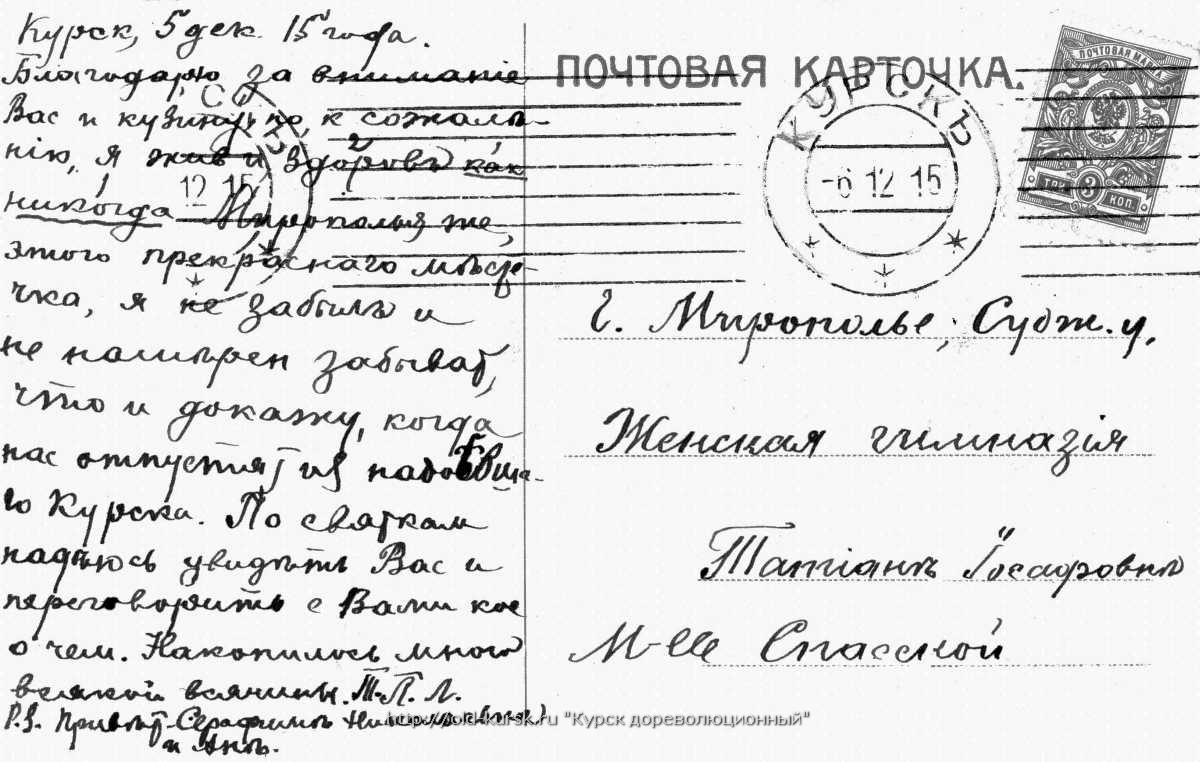 Курск, 5 дек. 15 года.
Благодарю за вниманіе
Вас и кузину, но, к сожалѣ-
нію, я жив и здоровъ как
никогда Мирополья же,
этого прекраснаго мѣсте-
чка, я не забылъ и
не намѣрен забывать,
что и докажу, когда
нас отпустят из надоѣвша-
го Курска. По святкам
надѣюсь увидѣть Вас и
переговорить с Вами кое
о чем. Накопилось много
всякой всячины. Т. П. Л.
P.S. Привѣт Серафимѣ
и Анѣ.
ПОЧТОВАЯ КАРТОЧКА.
КУРСКЪ
-6 12 15
12 15
ПОЧТОВАЯ МАРКА
ТРИ 3 КОП.
г. Мирополье, Судж. у.
Женская гимназія
Татіанѣ Іосафовнѣ
M-lle Спасской
http://old-kursk.ru "Курск дореволюционный"